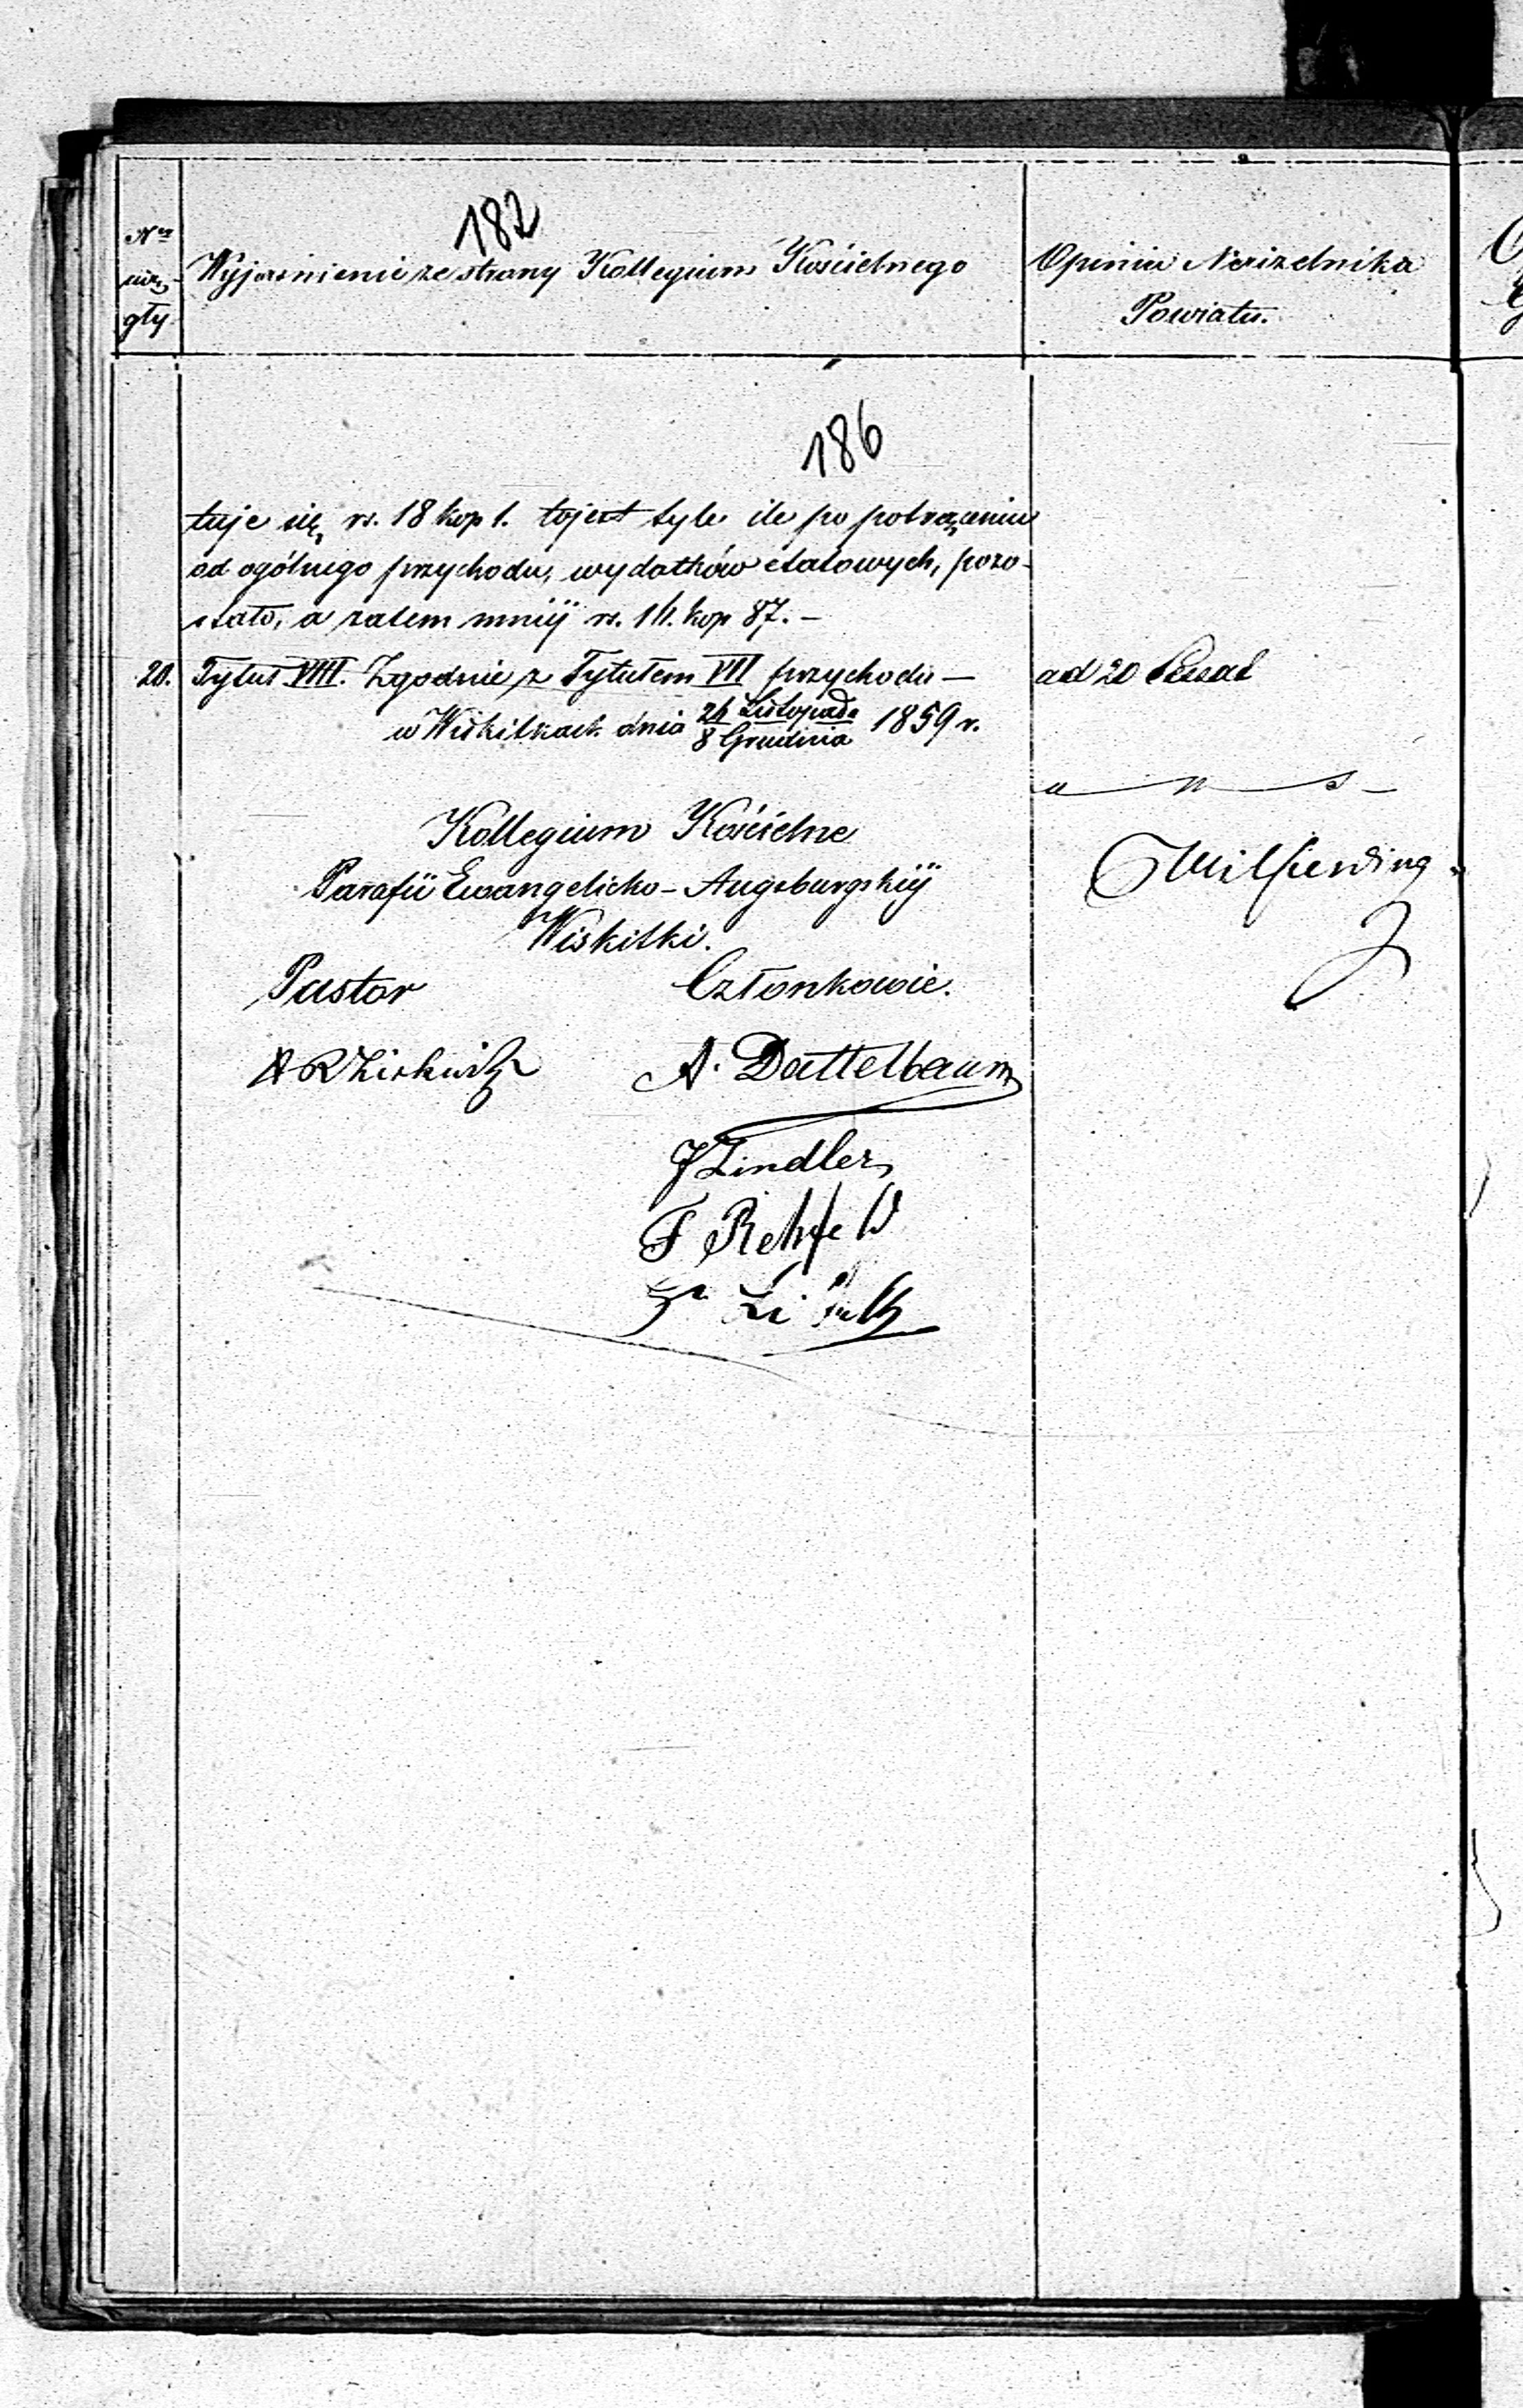 182
Nr
cią
gły
Wyjaśnienie ze strony Kollegium Kościelnego
Opinia Naczelnika
Powiatu.
186
tuje się rs. 18 kop 1. tojest tyle ile po potrąceniu
od ogólnego przychodu, wydatków etatowych, pozo-
stało, a zatem mniéj rs. 14. kop 87. –
20. Tytuł VIII. Zgodnie z Tytułem VII przychodu –
ad 20
w Wiskitkach dnia 24 Listopada / 8 Grudnia 1859 r.
Kollegium Kościelne
Parafii Ewangelicko-Augsburgskiéj
Wiskitki.
Pastor
Członkowie.
A. Dattelbaum
J Lindler
F Rehfeld